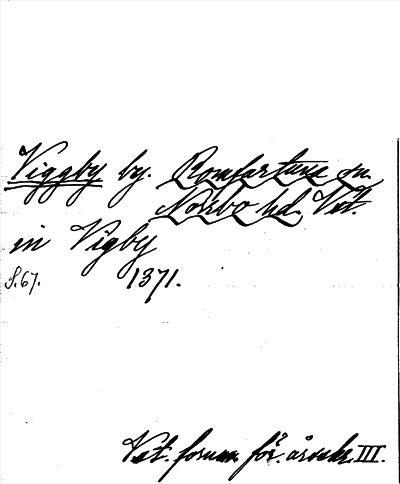 Viggby by. Romfartuna sn.
Norrbo hd. Vst.
in Vigby
S. 67. 1371.
Vst. fornm. för. årsskr. III.